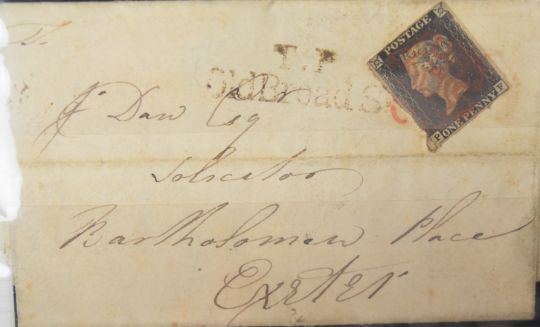 T.P
Old Broad S
POSTAGE
ONE PENNY
P F
Daw Esq
Solicitor
Bartholomew Place
Exeter